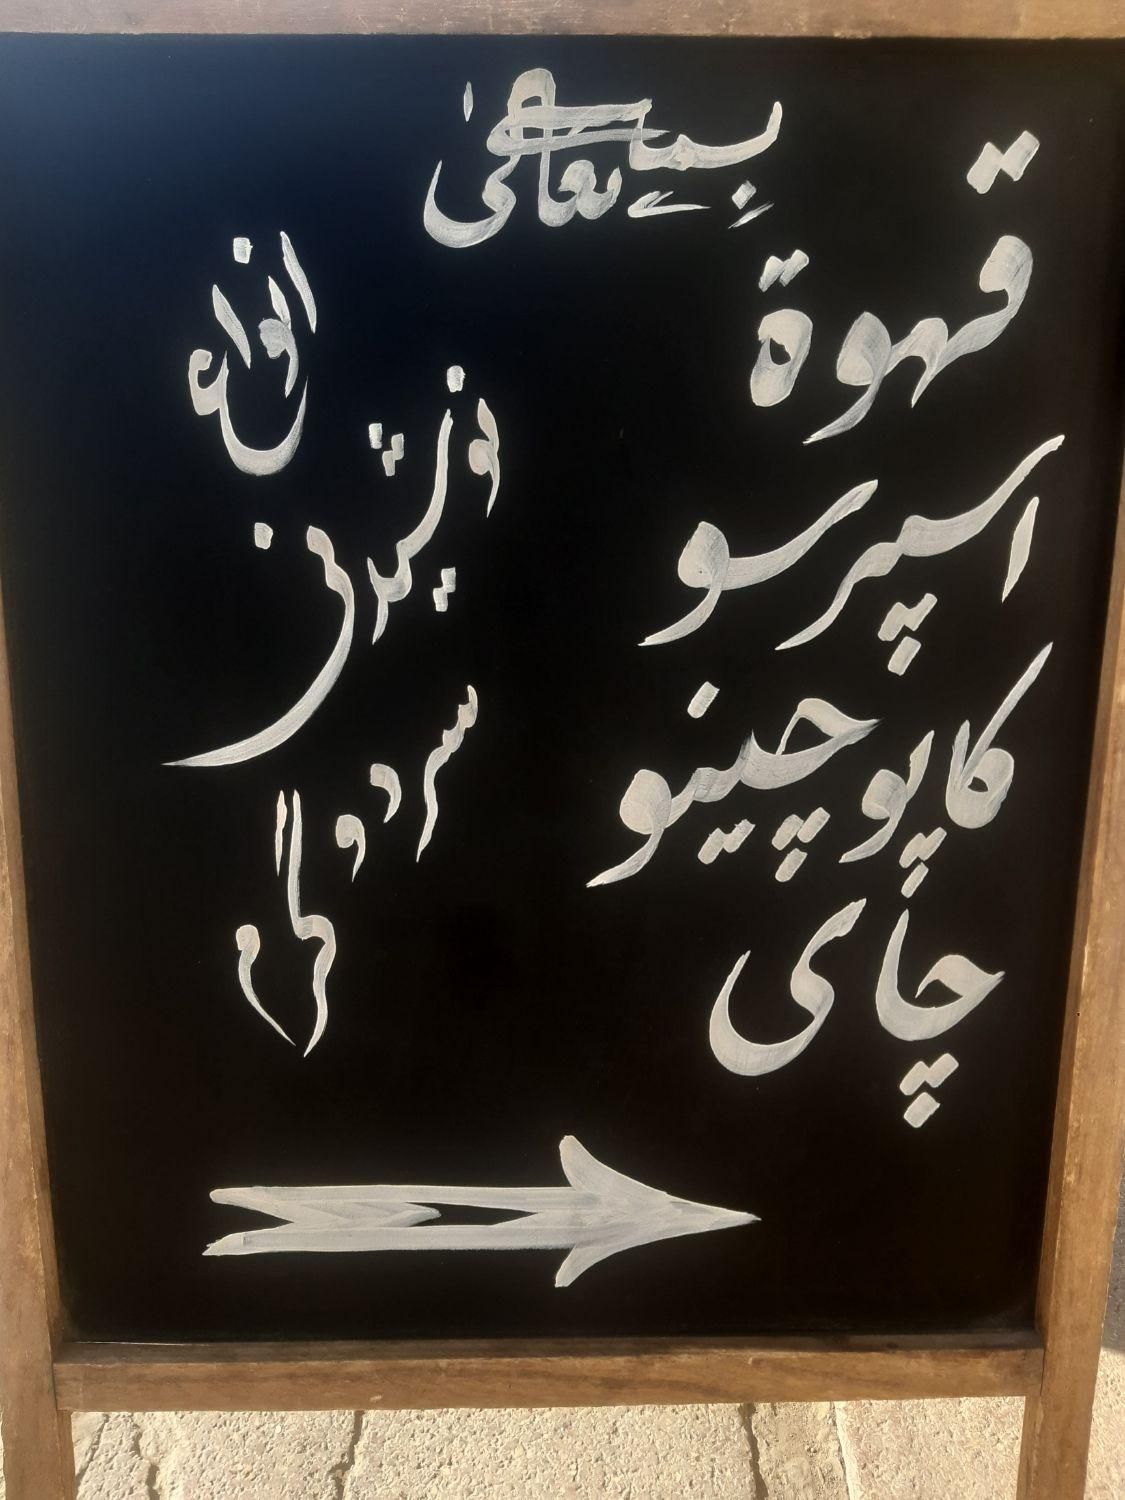 بسمه تعالی
قهوة
اسپرسو
کاپوچینو
چای
انواع
نوشیدنی
سرد و
گرم